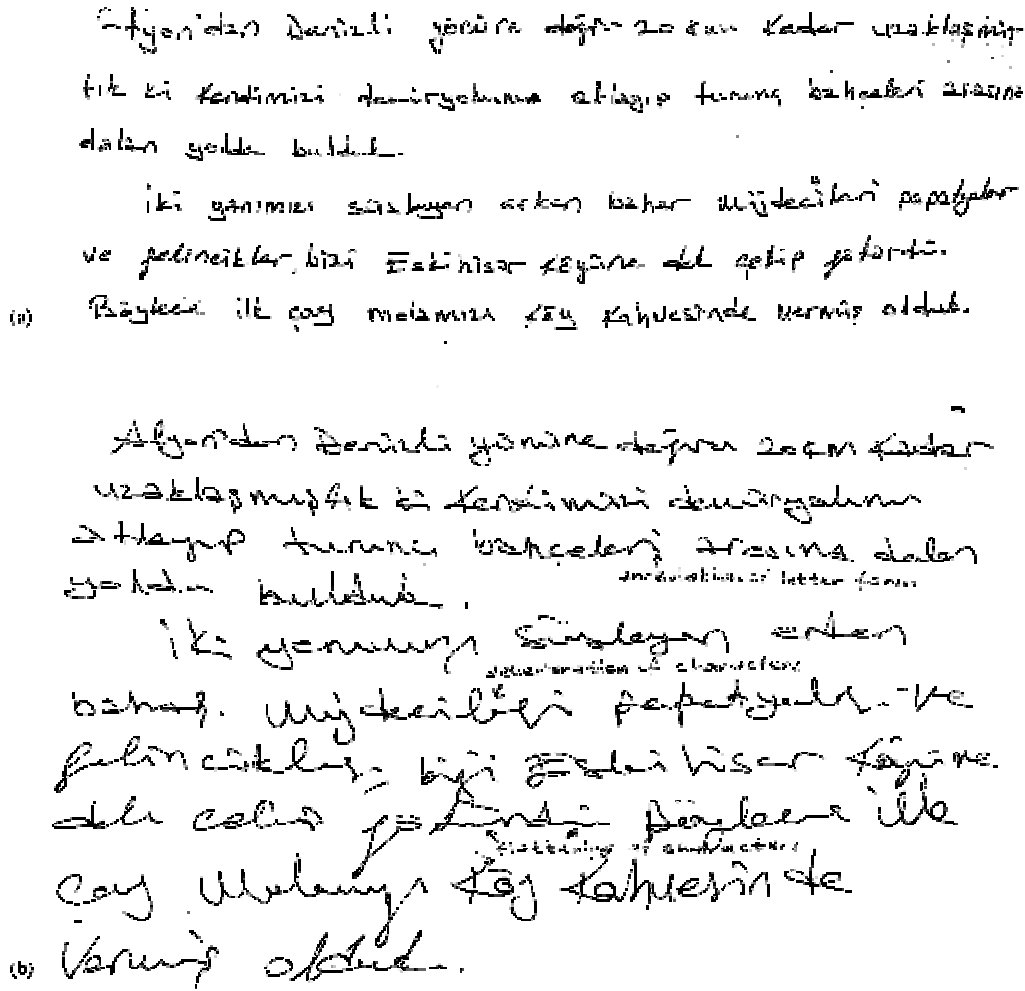 Afyon'dan Denizli yönüne doğru 20 km kadar uzaklaşmış-
tık ki kendimizi demiryolunu atlayıp turunç bahçeleri arasına
dalan yolda bulduk.
İki yanımızı süsleyen erken bahar müjdecileri papatyalar
ve gelincikler, bizi Eskihisar köyüne dek çekip götürdü.
(a) Böylece ilk çay molamızı köy kahvesinde vermiş olduk.
Afyon'dan Denizli yönüne doğru 20 km kadar
uzaklaşmıştık ki kendimizi demiryolunu
atlayıp turunç bahçeleri arasına dalan
letter form
yolda bulduk.
İki yanımızı süsleyen erken
deterioration of characters
bahar müjdecileri papatyalar ve
gelincikler bizi Eskihisar köyüne
dek çekip Böylece ilk
flattening of characters
çay molamızı köy kahvesinde
(b) vermiş olduk.